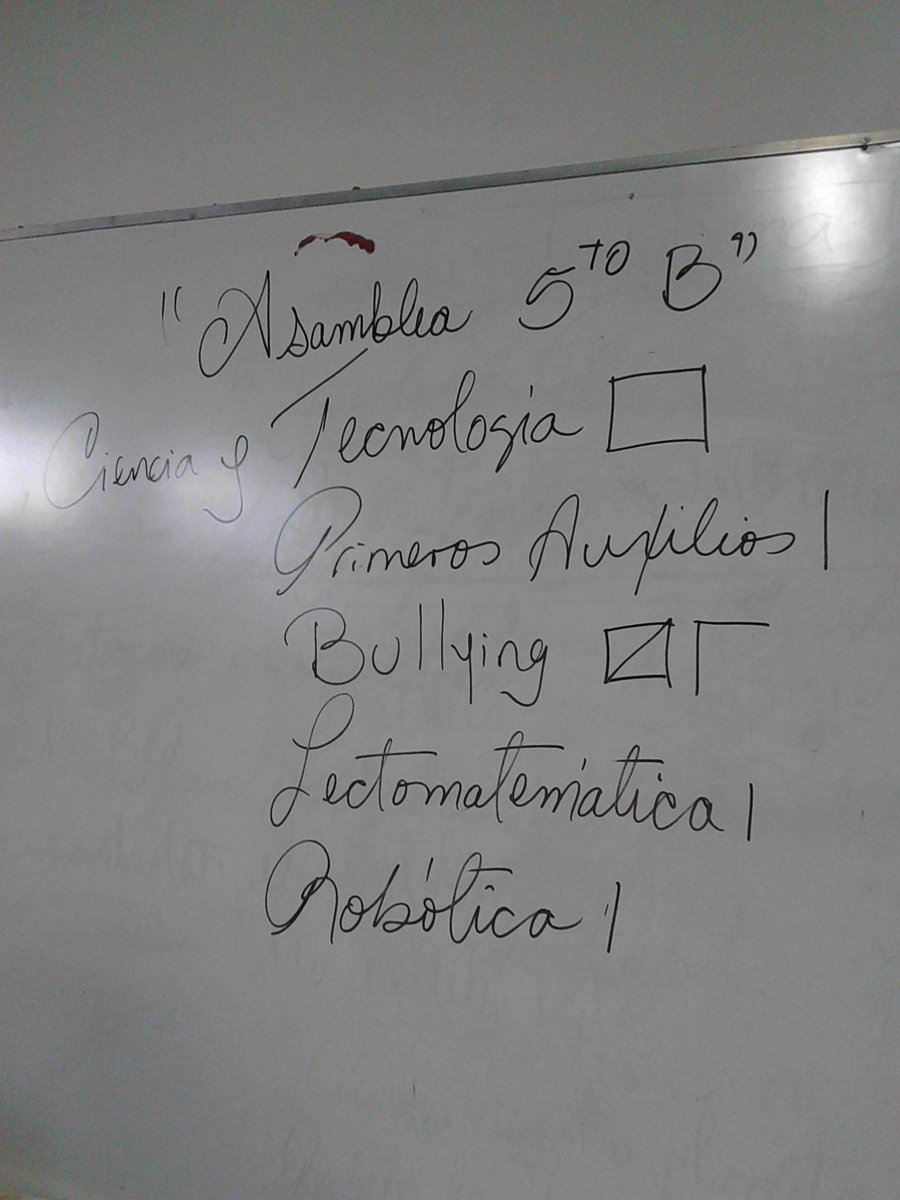 "Asamblea 5to B"
Ciencia y Tecnología
Primeros Auxilios |
Bullying
Lectomatemática |
Robótica |